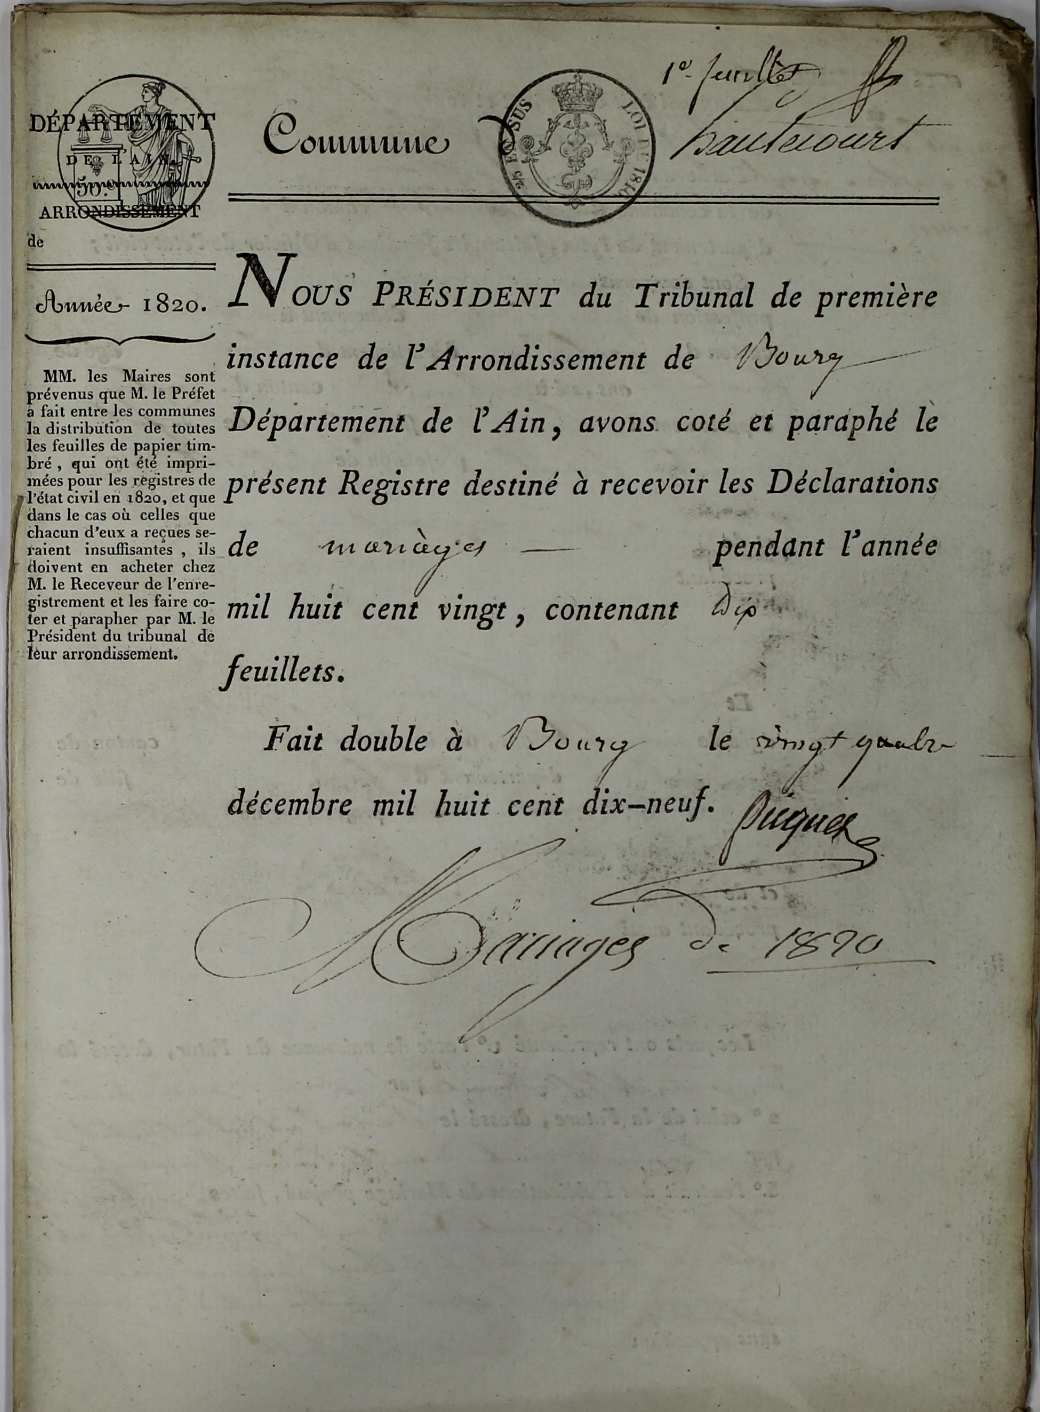 1er feuillet
DÉPARTEMENT
DE L'AIN.
50.c
ARRONDISSEMENT
de
Commune
EN SUS
LOI DE 1816
hautecourt
Année 1820.
MM. les Maires sont
prévenus que M. le Préfet
a fait entre les communes
la distribution de toutes
les feuilles de papier tim-
bré, qui ont été impri-
mées pour les registres de
l'état civil en 1820, et que
dans le cas où celles que
chacun d'eux a reçues se-
raient insuffisantes, ils
doivent en acheter chez
M. le Receveur de l'enre-
gistrement et les faire co-
ter et parapher par M. le
Président du tribunal de
leur arrondissement.
NOUS PRÉSIDENT du Tribunal de première
instance de l'Arrondissement de Bourg
Département de l'Ain, avons coté et paraphé le
présent Registre destiné à recevoir les Déclarations
de mariages pendant l'année
mil huit cent vingt, contenant Dix
feuillets.
Fait double à Bourg le vingt quatre
décembre mil huit cent dix-neuf.
Mariages de 1820